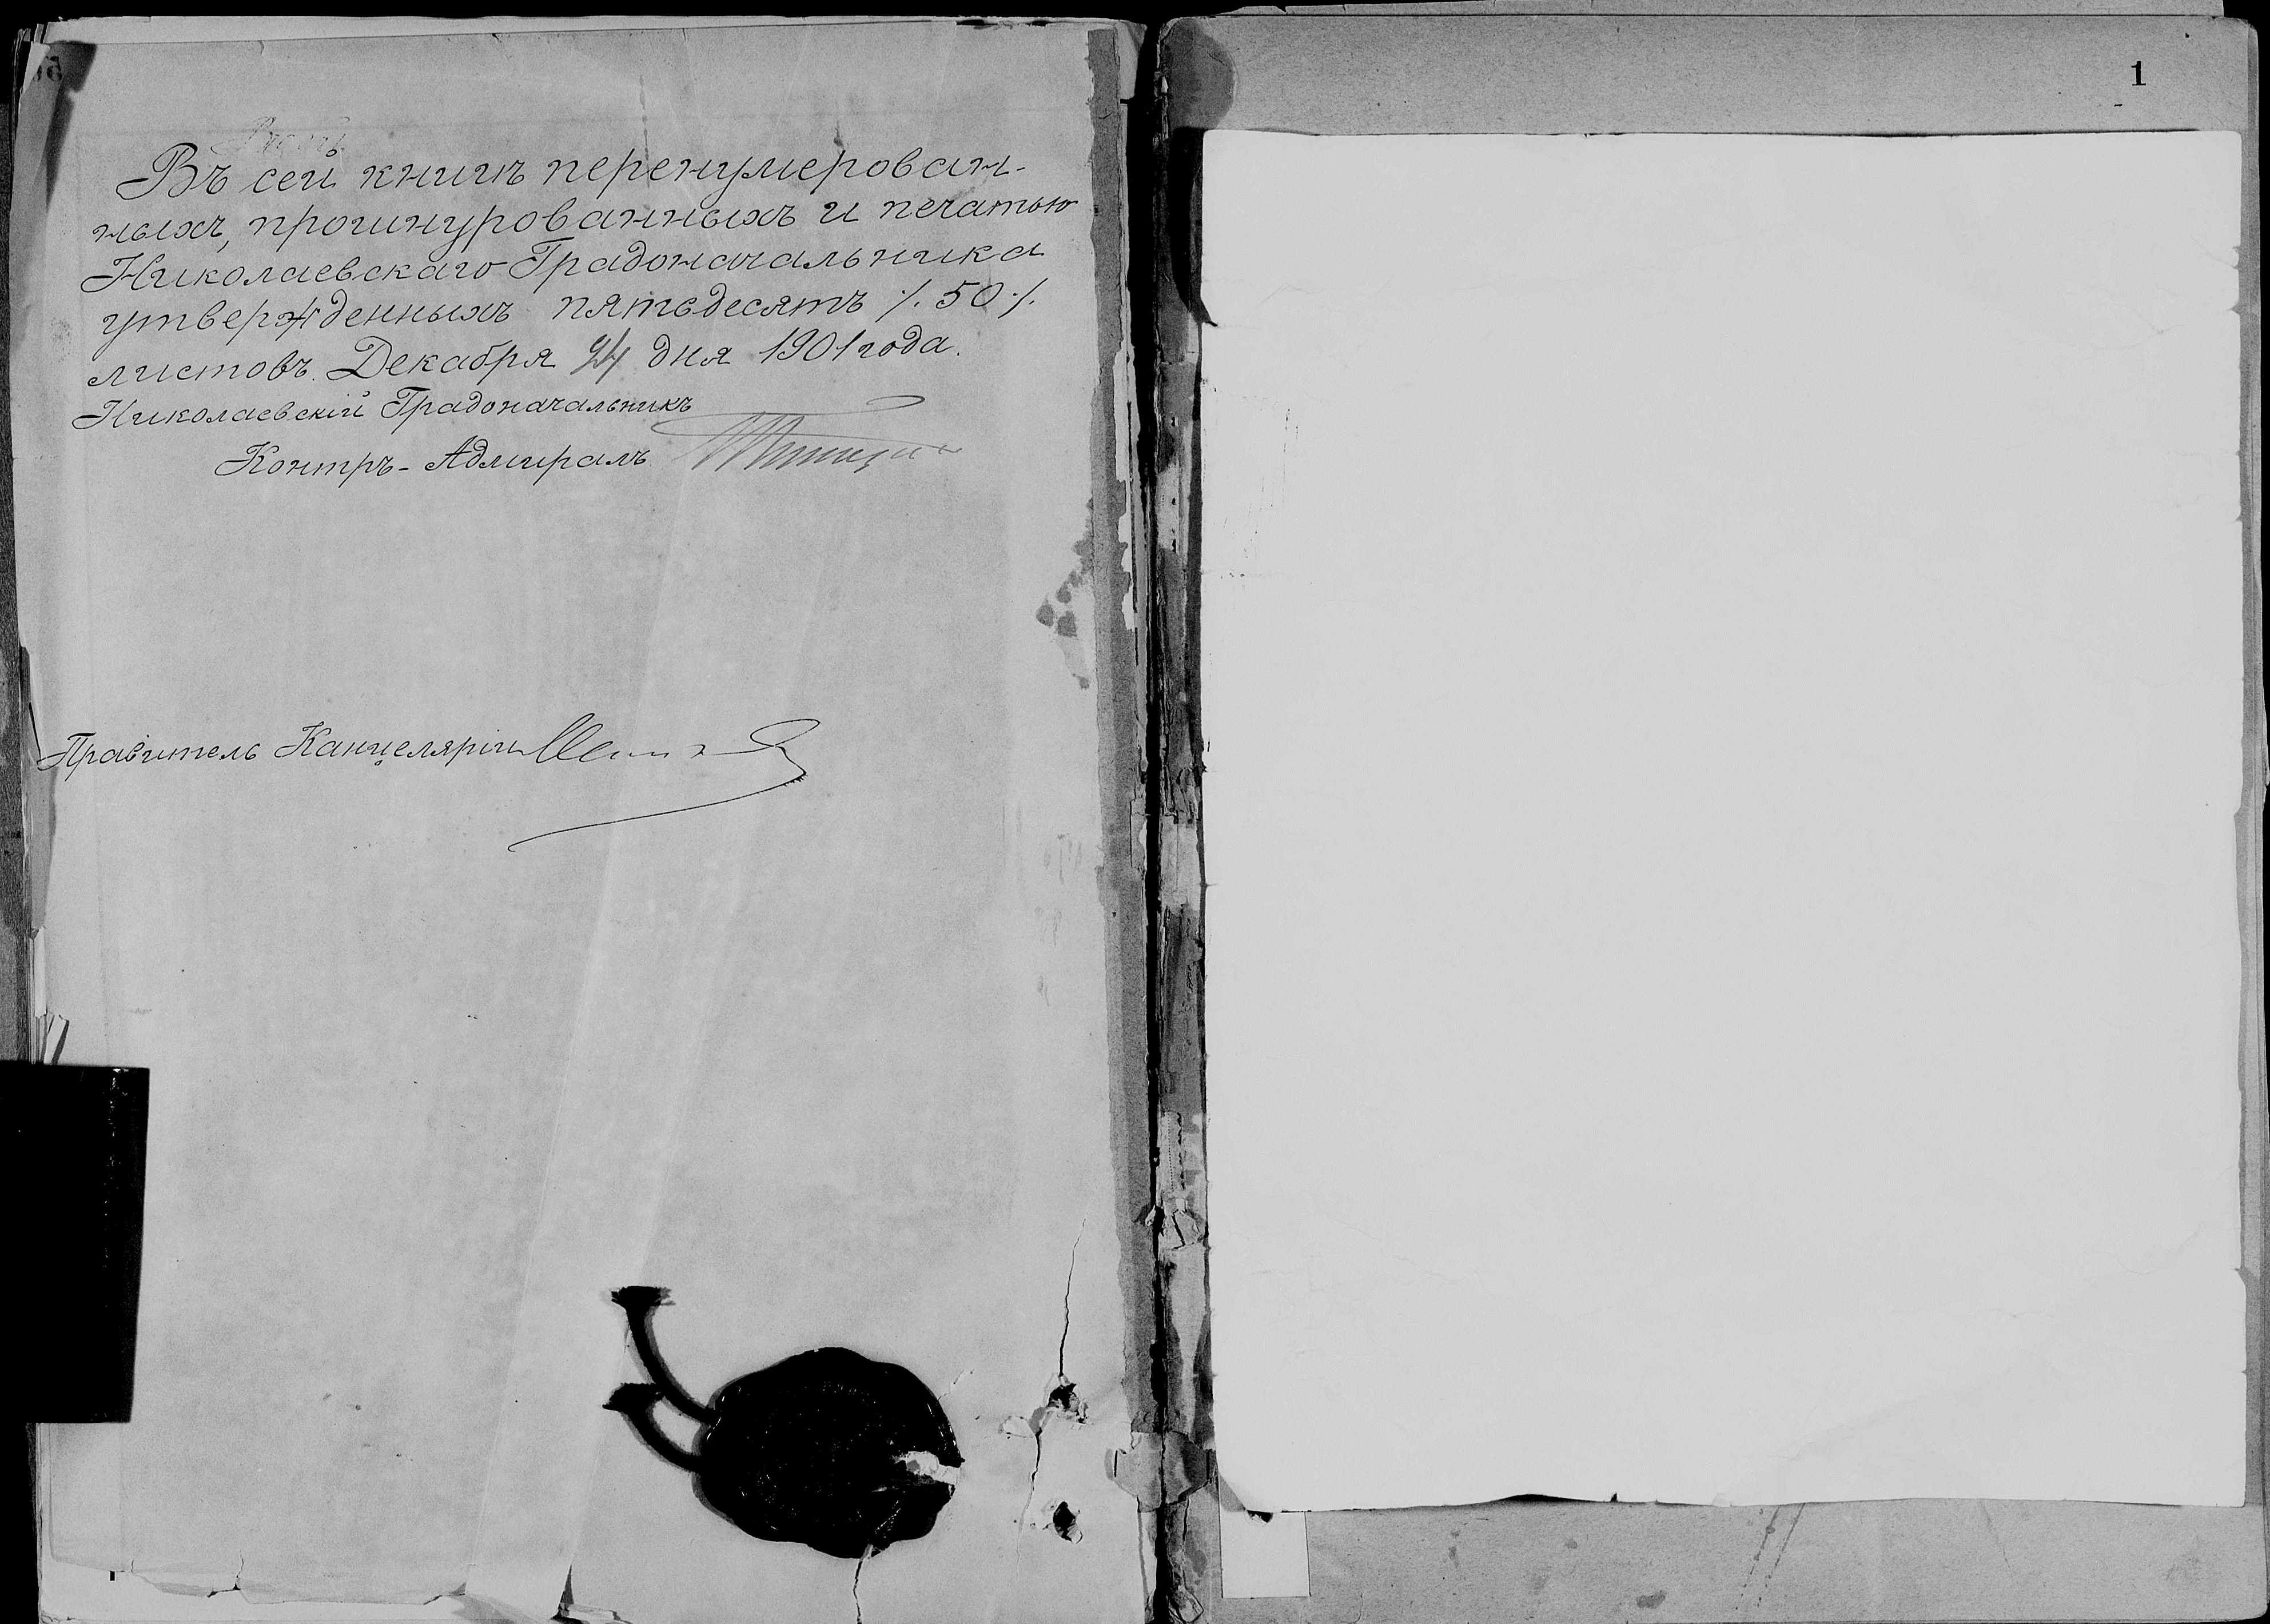 Въ сей книгѣ перенумерован-
ныхъ, прошнурованныхъ и печатью
Николаевскаго Градоначальника
утвержденныхъ пятьдесятъ ./. 50 ./.
листовъ. Декабря 24 дня 1901 года.
Николаевскій Градоначальникъ
Контръ-Адмиралъ
Правитель Канцеляріи
1